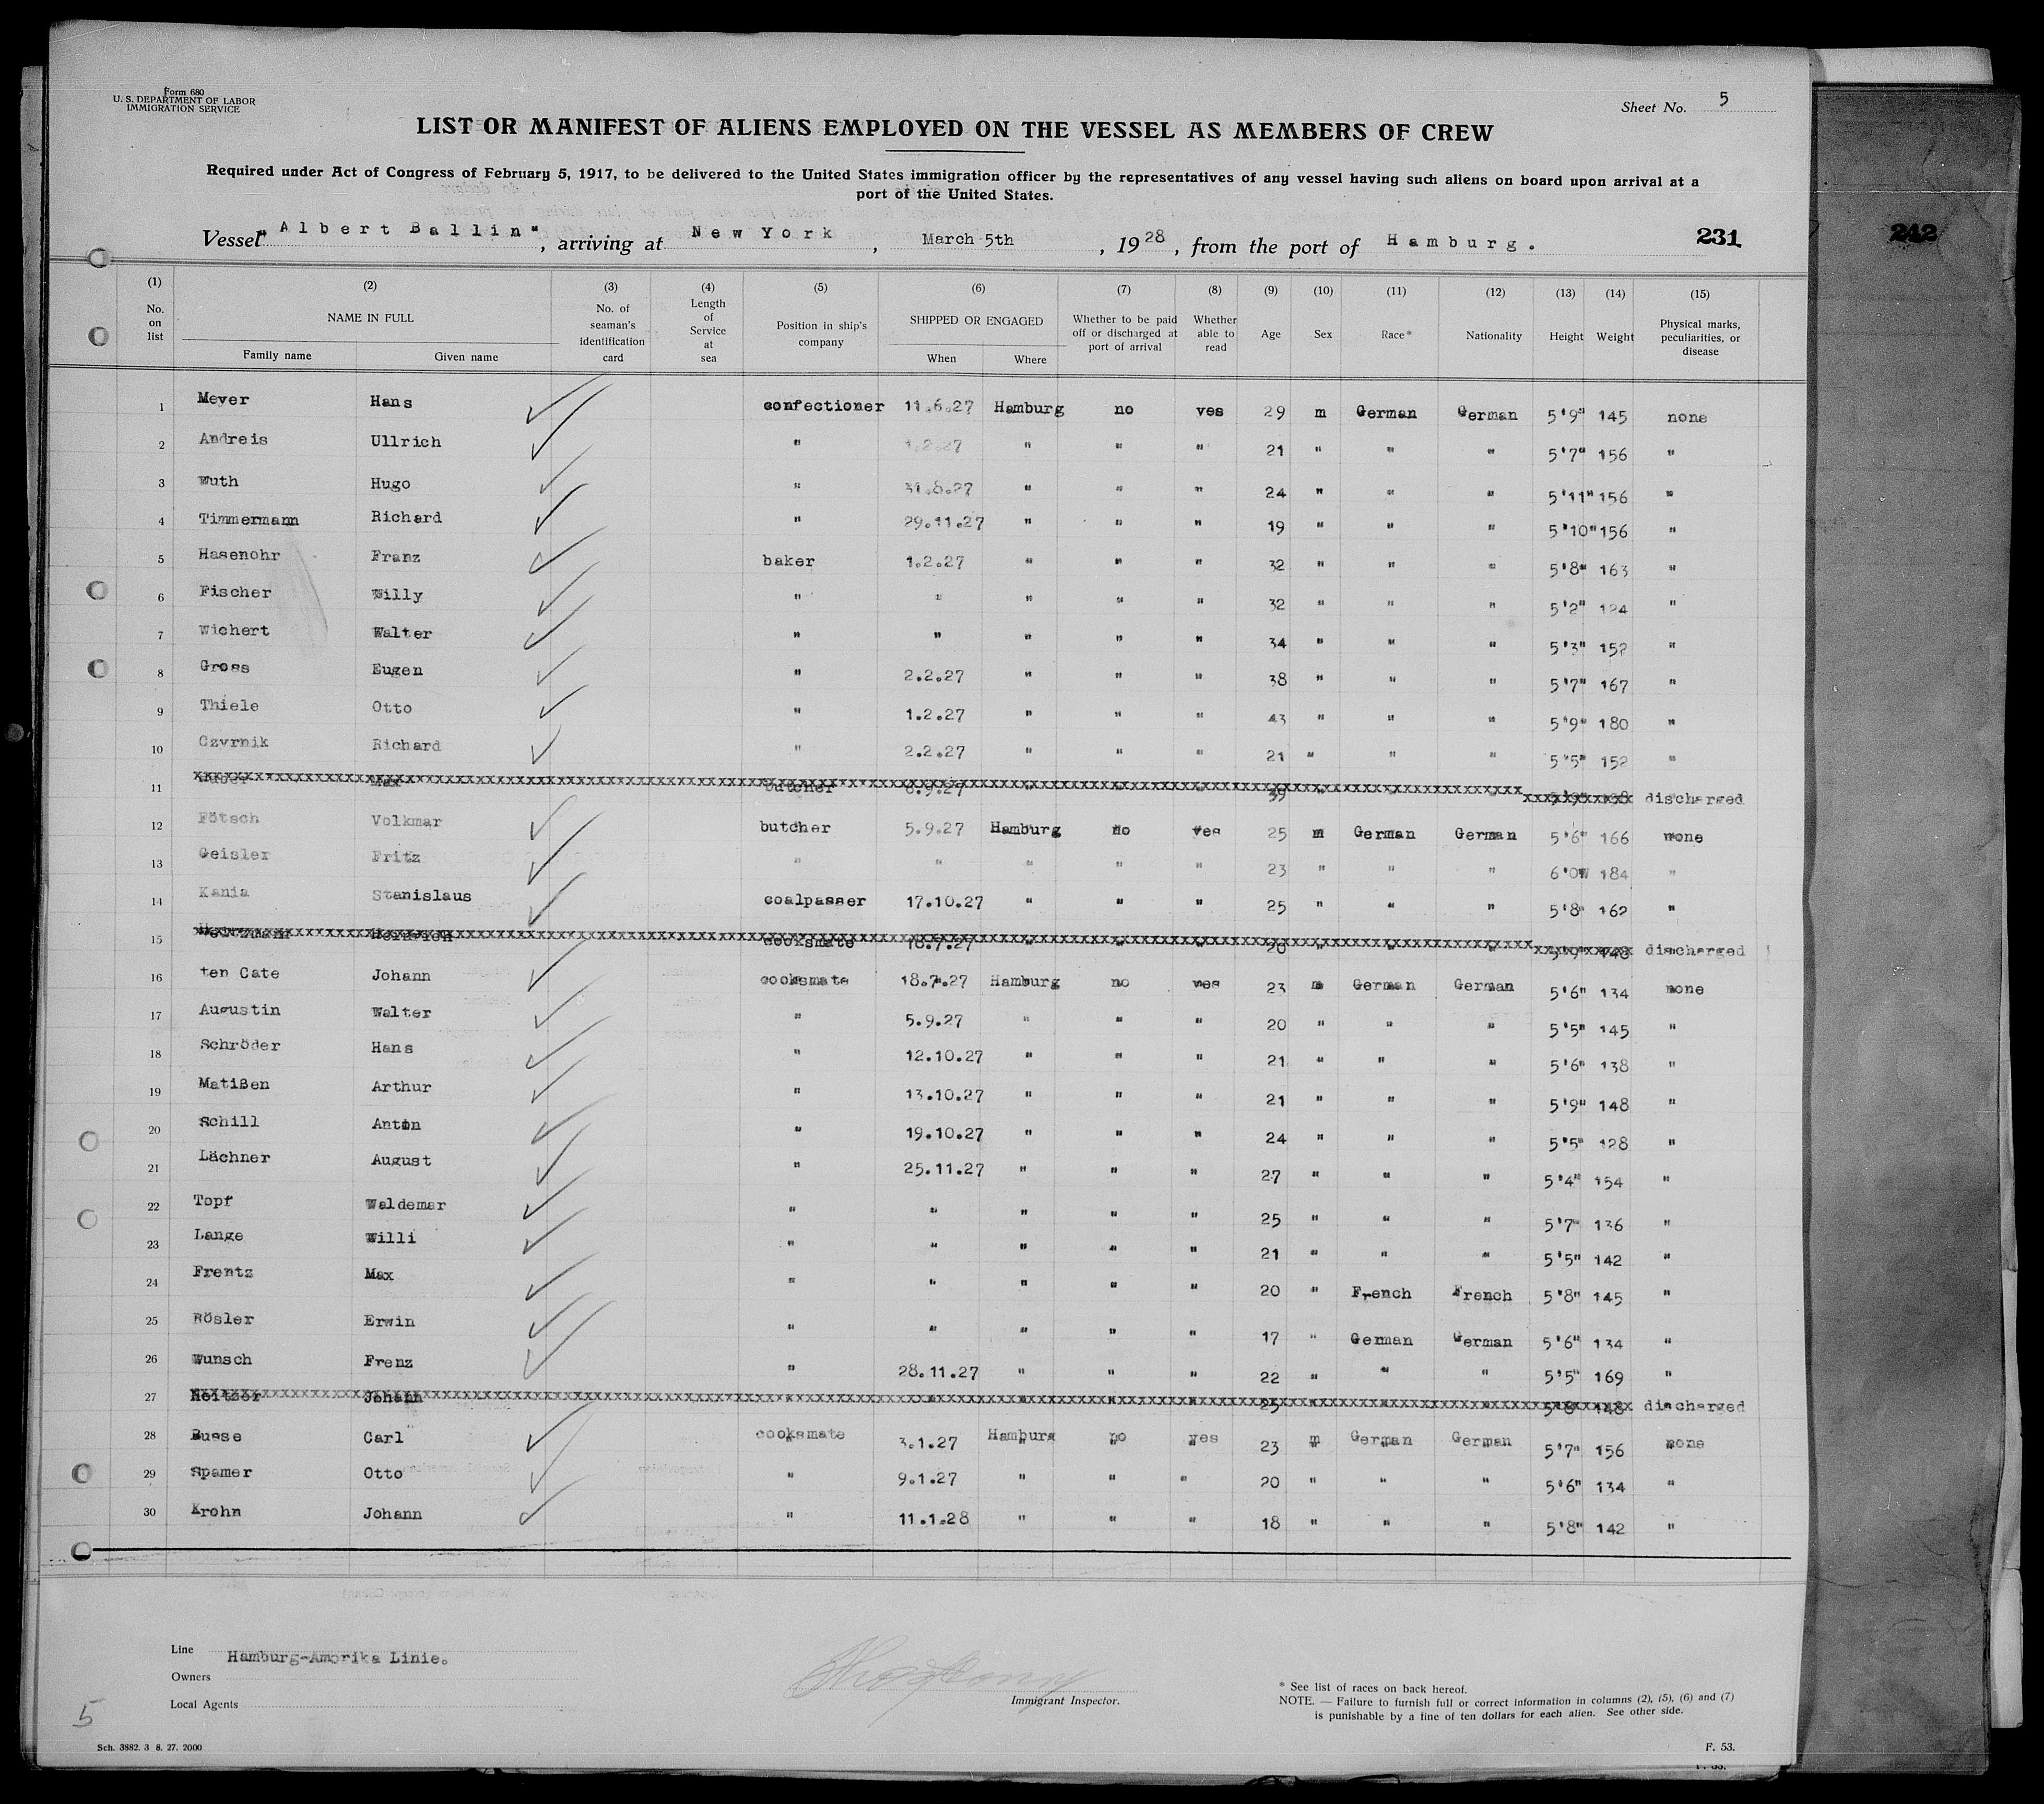 Form 680
U. S. DEPARTMENT OF LABOR
IMMIGRATION SERVICE
Sheet No. 5
LIST OR MANIFEST OF ALIENS EMPLOYED ON THE VESSEL AS MEMBERS OF CREW
Required under Act of Congress of February 5, 1917, to be delivered to the United States immigration officer by the representatives of any vessel having such aliens on board upon arrival at a
port of the United States.
Vessel "Albert Ballin", arriving at New York, March 5th, 1928, from the port of Hamburg. 231 242
(1) (2) (3) (4) (5) (6) (7) (8) (9) (10) (11) (12) (13) (14) (15)
No. on list NAME IN FULL Family name Given name No. of seaman's identification card Length of Service at sea Position in ship's company SHIPPED OR ENGAGED When Where Whether to be paid off or discharged at port of arrival Whether able to read Age Sex Race* Nationality Height Weight Physical marks, peculiarities, or disease
1 Meyer Hans confectioner 11.6.27 Hamburg no yes 29 m German German 5'9" 145 none
2 Andreis Ullrich " 1.2.27 " " " 21 " " " 5'7" 156 "
3 Wuth Hugo " 31.8.27 " " " 24 " " " 5'11" 156 "
4 Timmermann Richard " 29.11.27 " " " 19 " " " 5'10" 156 "
5 Hasenohr Franz baker 1.2.27 " " " 32 " " " 5'8" 163 "
6 Fischer Willy " " " " " 32 " " " 5'2" 124 "
7 Wichert Walter " " " " " 34 " " " 5'3" 152 "
8 Gross Eugen " 2.2.27 " " " 38 " " " 5'7" 167 "
9 Thiele Otto " 1.2.27 " " " 43 " " " 5'9" 180 "
10 Czyrnik Richard " 2.2.27 " " " 21 " " " 5'5" 152 "
11 Max butcher 39 discharged
12 Fötsch Volkmar butcher 5.9.27 Hamburg no yes 25 m German German 5'6" 166 none
13 Geisler Fritz " " " " " 23 " " " 6'0" 184 "
14 Kania Stanislaus coalpasser 17.10.27 " " " 25 " " " 5'8" 162 "
15 Heinrich cooksmate 18.7.27 " " " 20 " " " 5'9" 148 discharged
16 ten Cate Johann cooksmate 18.7.27 Hamburg no yes 23 m German German 5'6" 134 none
17 Augustin Walter " 5.9.27 " " " 20 " " " 5'5" 145 "
18 Schröder Hans " 12.10.27 " " " 21 " " " 5'6" 138 "
19 Matißen Arthur " 13.10.27 " " " 21 " " " 5'9" 148 "
20 Schill Anton " 19.10.27 " " " 24 " " " 5'5" 128 "
21 Lächner August " 25.11.27 " " " 27 " " " 5'4" 154 "
22 Topf Waldemar " " " " " 25 " " " 5'7" 136 "
23 Lange Willi " " " " " 21 " " " 5'5" 142 "
24 Frentz Max " " " " " 20 " French French 5'8" 145 "
25 Rösler Erwin " " " " " 17 " German German 5'6" 134 "
26 Wunsch Frenz " 28.11.27 " " " 22 " " " 5'5" 169 "
27 Johann " " " " " 25 " " " 5'8" 148 discharged
28 Busse Carl cooksmate 3.1.27 Hamburg no yes 23 m German German 5'7" 156 none
29 Spamer Otto " 9.1.27 " " " 20 " " " 5'6" 134 "
30 Krohn Johann " 11.1.28 " " " 18 " " " 5'8" 142 "
Line
Hamburg-Amerika Linie.
Owners
Local Agents
Immigrant Inspector.
* See list of races on back hereof.
NOTE. — Failure to furnish full or correct information in columns (2), (5), (6) and (7)
is punishable by a fine of ten dollars for each alien. See other side.
5
Sch. 3882. 3 8. 27. 2000
F. 53.